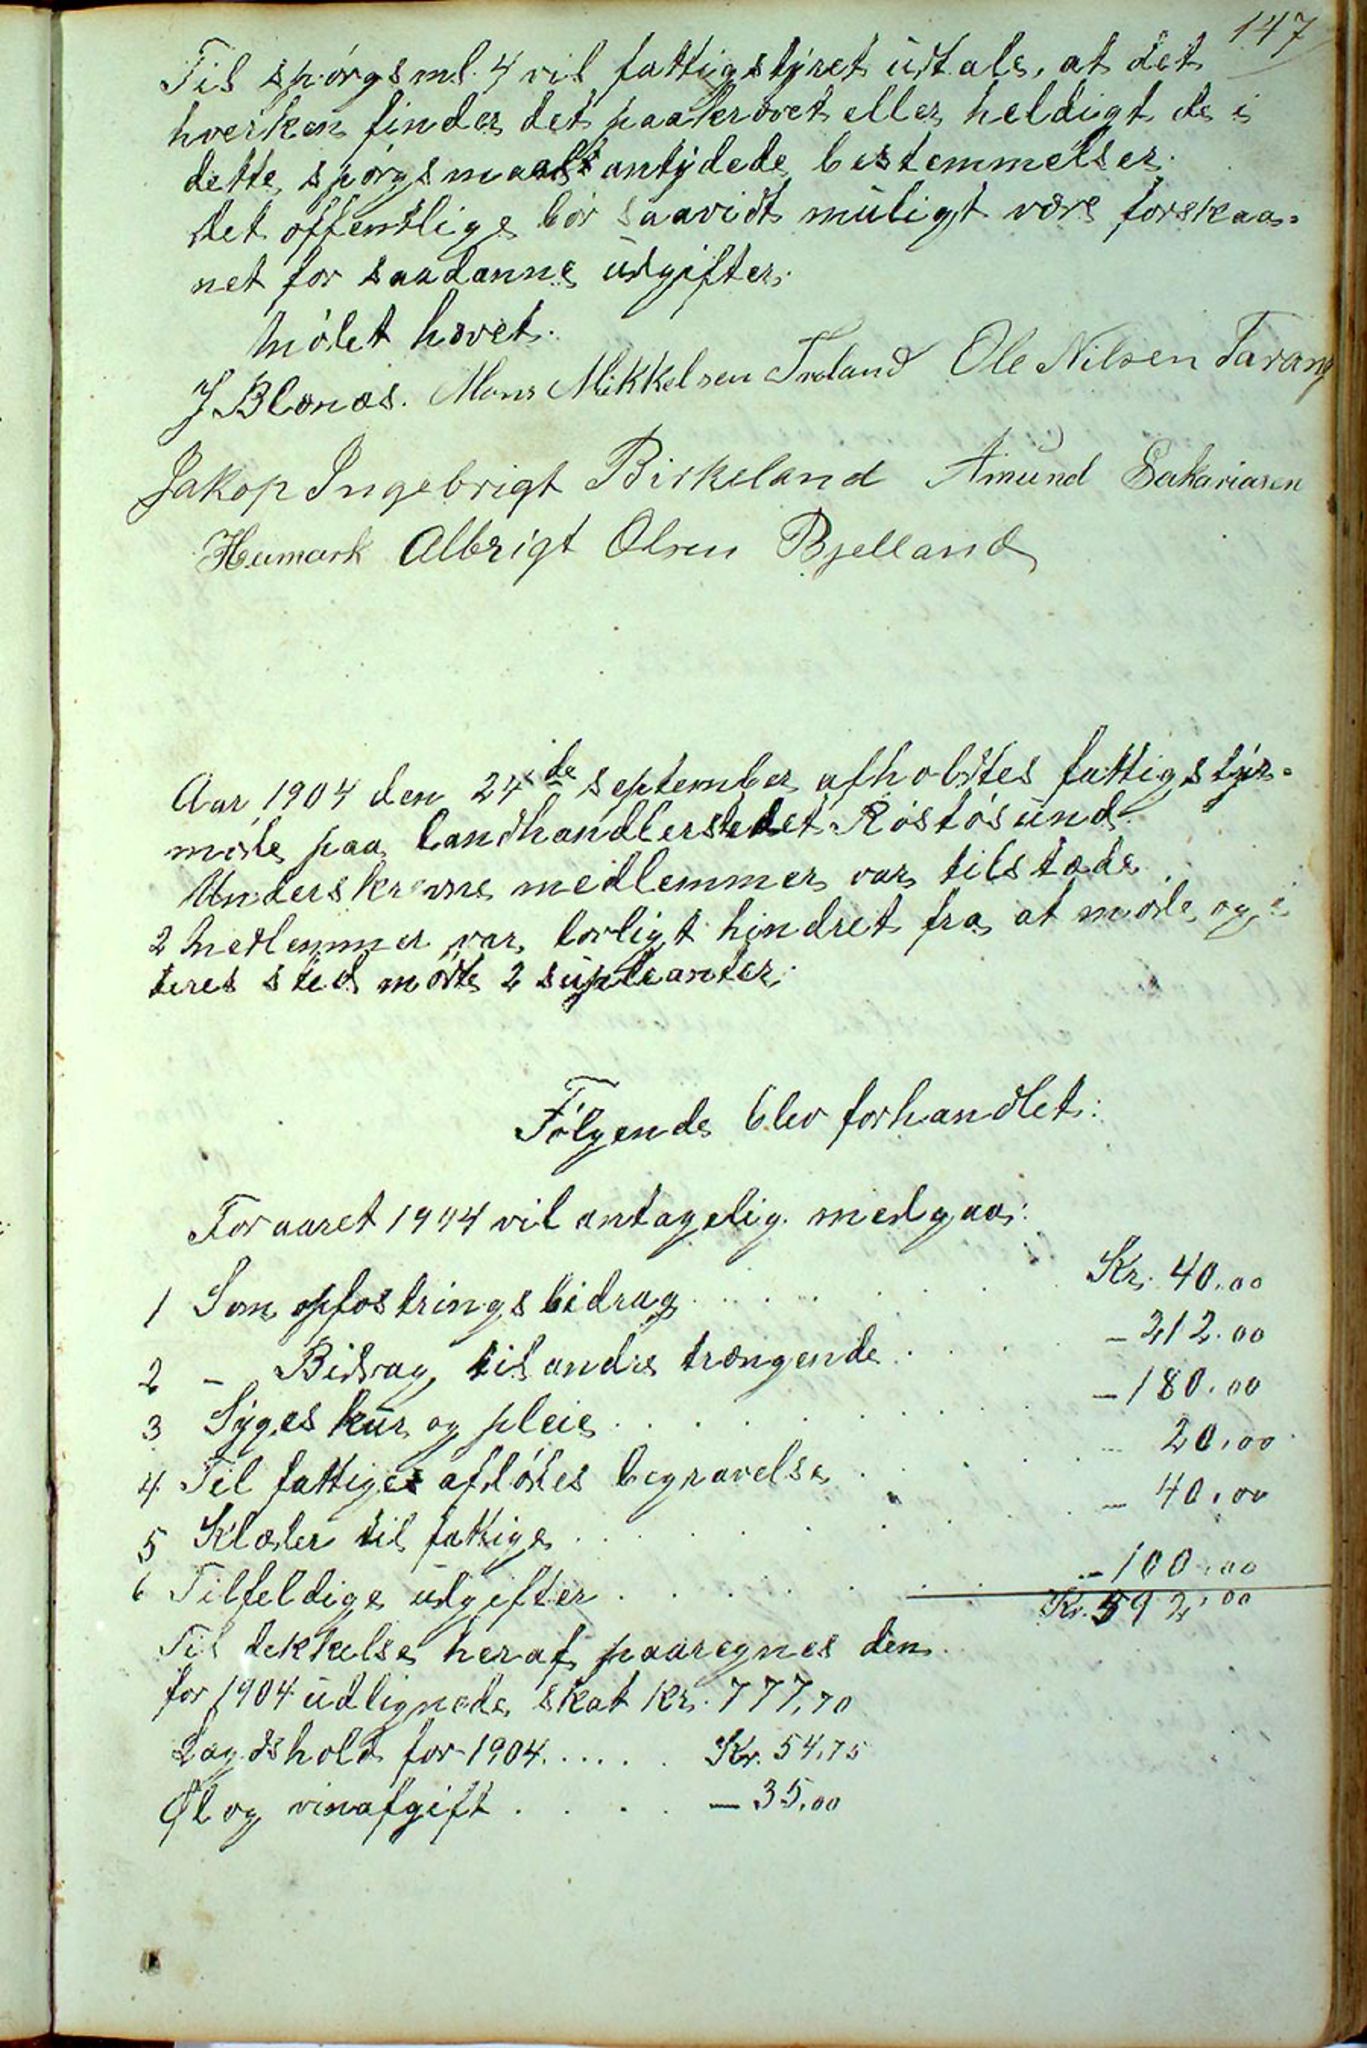 147
Til spørgsml. 4 vil fattigstyret udtale, at det
hverken finder det paakrævet eller heldigt de i
dette spørgsmaal antydede bestemmelser.
Det offentlige bør saavidt muligt være forskaa-
net for saadanne udgifter.
Mødet hævet.
J Blænæs. Mons Mikkelsen Træland Ole Nilsen Tarang
Jakop Ingebrigt Birkeland Amund Sakariasen
Humark Albrigt Olsen Bjelland
Aar 1904 den 24de september afholdtes fattigstyr-
møde paa landhandlerstedet Røstøsund
Underskrevne medlemmer var tilstæde.
2 Medlemmer var lovligt hindret fra at møde og i
deres sted mødte 2 supleanter.
Følgende blev forhandlet:
For aaret 1904 vil antagelig medgaa:
1 Som opfostringsbidrag . . . . . . Kr. 40.00
2 – Bidrag til andre trængende . . . – 212.00
3 Syges kur og pleie . . . . . . – 180.00
4 Til fattiges afdødes begravelse . . . . – 20.00
5 Klæder til fattige . . . . . . – 40.00
6 Tilfeldige udgifter . . . . . . – 100.00
Kr. 592.00
Til dekkelse heraf paaregnes den
for 1904 udlignede skat kr. 777,70
Lægdshold for 1904. . . . . Kr. 54,75
Øl og vinafgift . . . . – 35,00